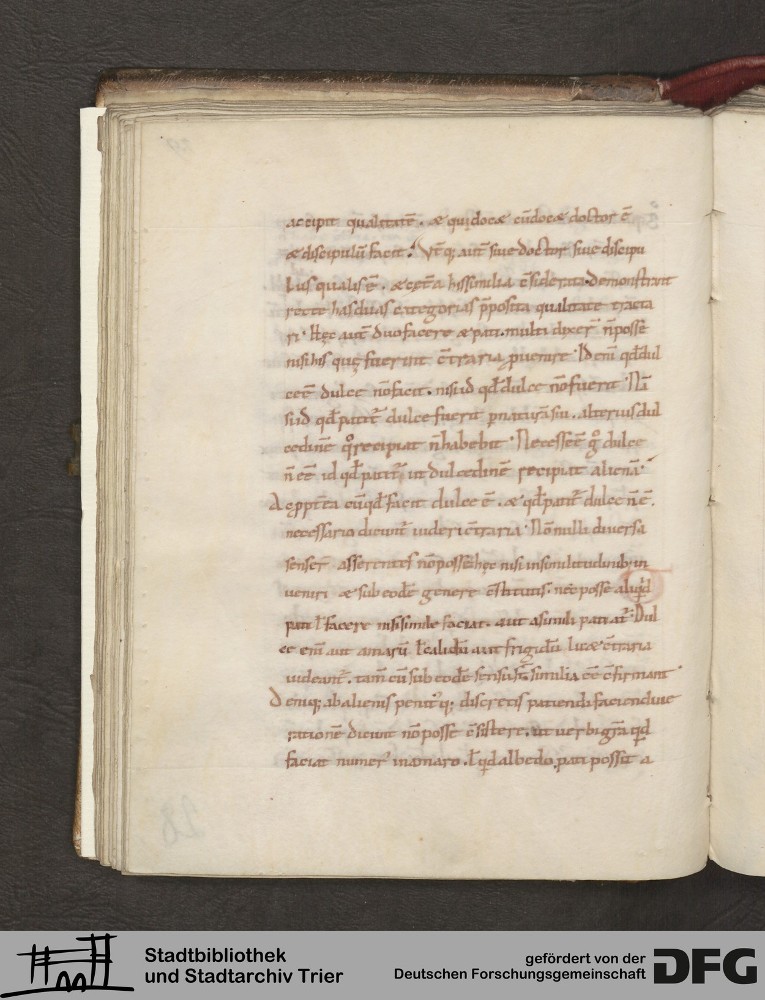 accipit qualitatē. & qui doc& cū doc& doctor ē
& discipulū facit. Vtq; autē siue doctor siue discipu
lus qualis ē. & cet̄a his similia c̄siderata demonstrant
recte has duas categorias p̄posita qualitate tracta
ri. Hęc autē duo facere & pati. multi dixer̄ n̄ posse
nisi his quę fuerint c̄traria puenire. Id enī qd̄ dul
ce ē dulce nō facit. nisi id qd̄ dulce nō fuerit. Nā
si id qd̄ patit̄ dulce fuerit p naturā suā. alterius dul
cedinē recipiat n̄ habebit. Necesse ē g̊ dulce
n̄ eē id qd̄ patit̄ ut dulcedinē recipiat alienā.
Ac ppt̄ea cū qd̄ facit dulce ē. & qd̄ patit̄ dulce n̄ ē.
necessario dicunt̄ uideri c̄traria. Nōnulli diuersa
senser̄ asserentes nō posse hęc nisi in similitudinib; in
ueniri & sub eodē genere c̄stitutis. nec posse aliqd
pati ł facere nisi simile faciat. aut a simili patiat̄. Dul
ce enī aut amarū ł calidū aut frigidū lic& c̄traria
uideant̄. tam̄ cū sub eodē sensu s̄t similia eē c̄firmant
Deniq; ab alienis penitq; discretis patiendi faciendiue
rationē dicunt nō posse c̄sistere. ut uerbi gr̄a qd
faciat numer' in amaro. ł qd albedo pati possit a
Stadtbibliothek
und Stadtarchiv Trier
gefördert von der
Deutschen Forschungsgemeinschaft
DFG